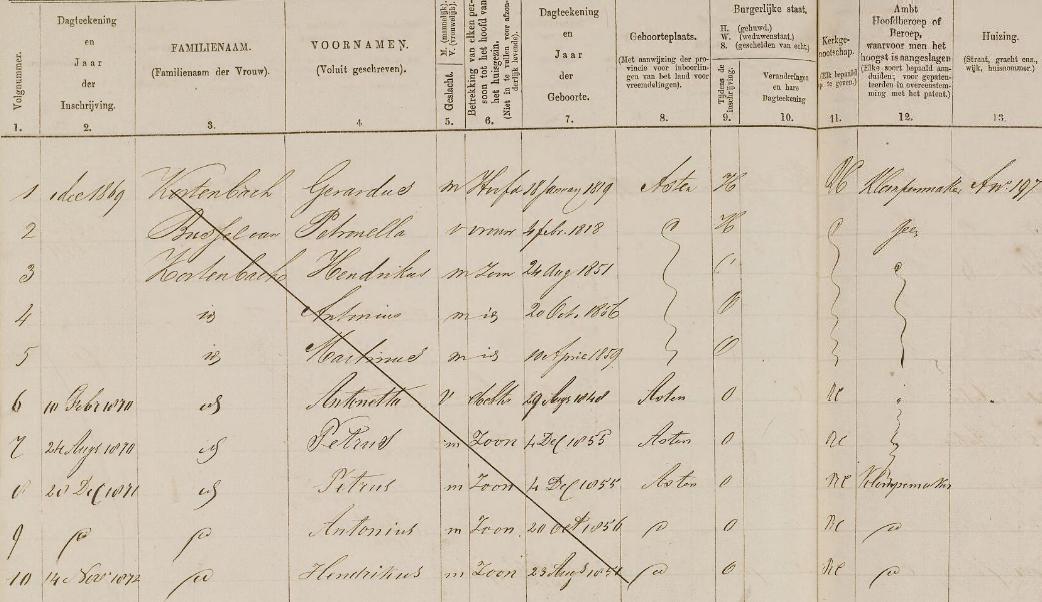 Volgnummer.
Dagteekening
en
Jaar
der
Inschrijving.
FAMILIENAAM.
(Familienaam der Vrouw).
VOORNAMEN.
(Voluit geschreven).
Geslacht.
M. (mannelijk).
V. (vrouwelijk).
Betrekking van elken persoon tot het hoofd van het huisgezin.
(Niet in te vullen voor afzonderlijk levende).
Dagteekening
en
Jaar
der
Geboorte.
Geboorteplaats.
(Met aanwijzing der provincie voor inboorlingen van het land voor vreemdelingen).
Burgerlijke staat.
H. (gehuwd.)
W. (weduwenstaat.)
S. (gescheiden van echt.)
Tijdens de inschrijving.
Veranderingen
en hare
Dagteekening
Kerkgenootschap.
Ambt
Hoofdberoep of
Beroep,
waarvoor men het
hoogst is aangeslagen
(Elke soort bepaald aanduiden; voor gepatenteerden in overeenstemming met het patent.)
Huizing.
(Straat, gracht enz., wijk, huisnummer.)
1. 2. 3. 4. 5. 6. 7. 8. 9. 10. 11. 12. 13.
1 1 dec 1869 Kortenbach Gerardus m Hoofd 18 January 1819 Asten H RC Klompenmaker A no 197
2 Bussel van Petronella v vrouw 4 febr. 1818 H
3 Kortenbach Hendrikus m Zoon 24 Aug 1851
4 id Antonius m id 20 Oct. 1856 O
5 id Martinus m id 10 April 1859 O
6 10 Febr 1870 id Antonetta v Dochter 29 Augs 1848 Asten O RC
7 24 Augs 1870 id Petrus m Zoon 4 Dec 1855 Asten O RC
8 28 Dec 1871 id Petrus m Zoon 4 Dec 1855 Asten O RC Klompenmaker
9 Antonius m Zoon 20 Oct 1856 O RC
10 14 Nov 1872 Hendrikus m Zoon 23 Augs 1851 O RC